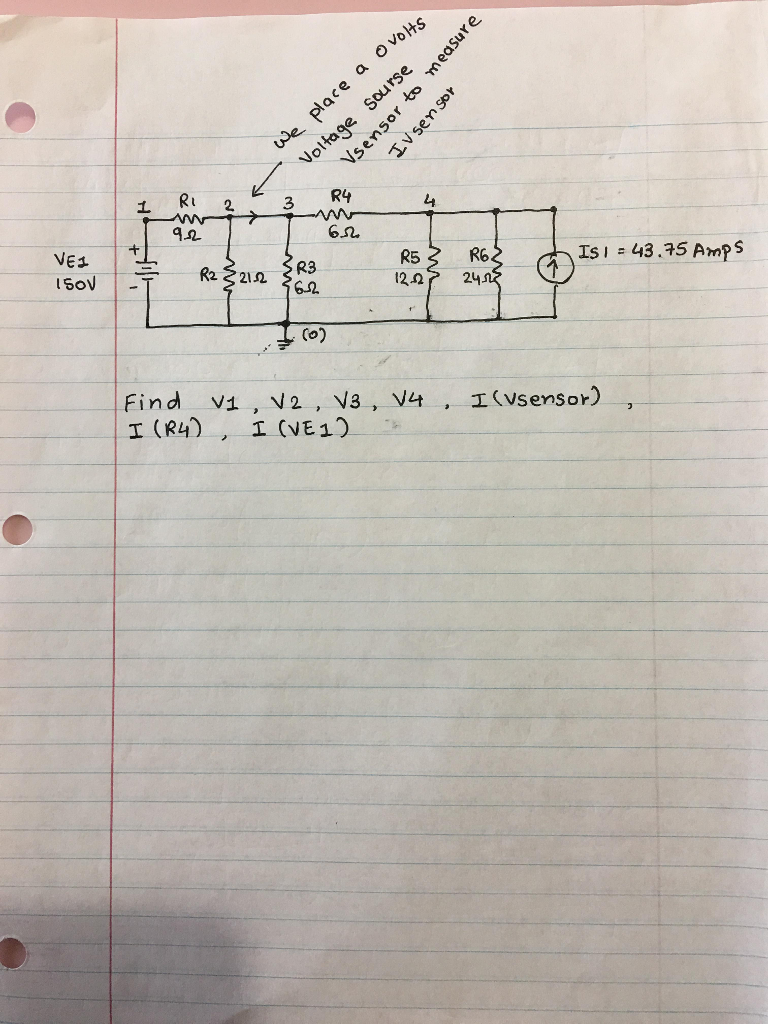 We place a 0volts
Voltage sourse
Vsensor to measure
IVsensor
1 R1 2 3 R4 4
9Ω 6Ω
VE1
150V
+
-
R2 21Ω
R3
6Ω
R5
12Ω
R6
24Ω
IS1 = 43.75 Amps
(0)
Find V1 , V2 , V3 , V4 , I(Vsensor) ,
I (R4) , I (VE1)